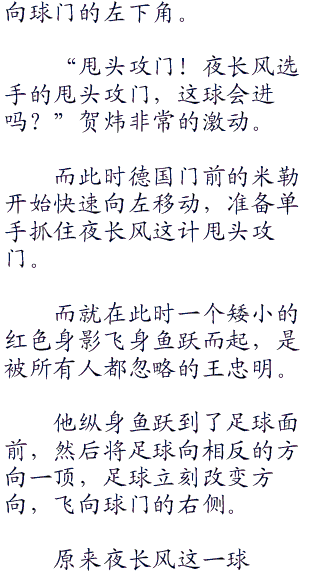 向球门的左下角。
“甩头攻门！夜长风选
手的甩头攻门，这球会进
吗？”贺炜非常的激动。
而此时德国门前的米勒
开始快速向左移动，准备单
手抓住夜长风这计甩头攻
门。
而就在此时一个矮小的
红色身影飞身鱼跃而起，是
被所有人都忽略的王忠明。
他纵身鱼跃到了足球面
前，然后将足球向相反的方
向一顶，足球立刻改变方
向，飞向球门的右侧。
原来夜长风这一球